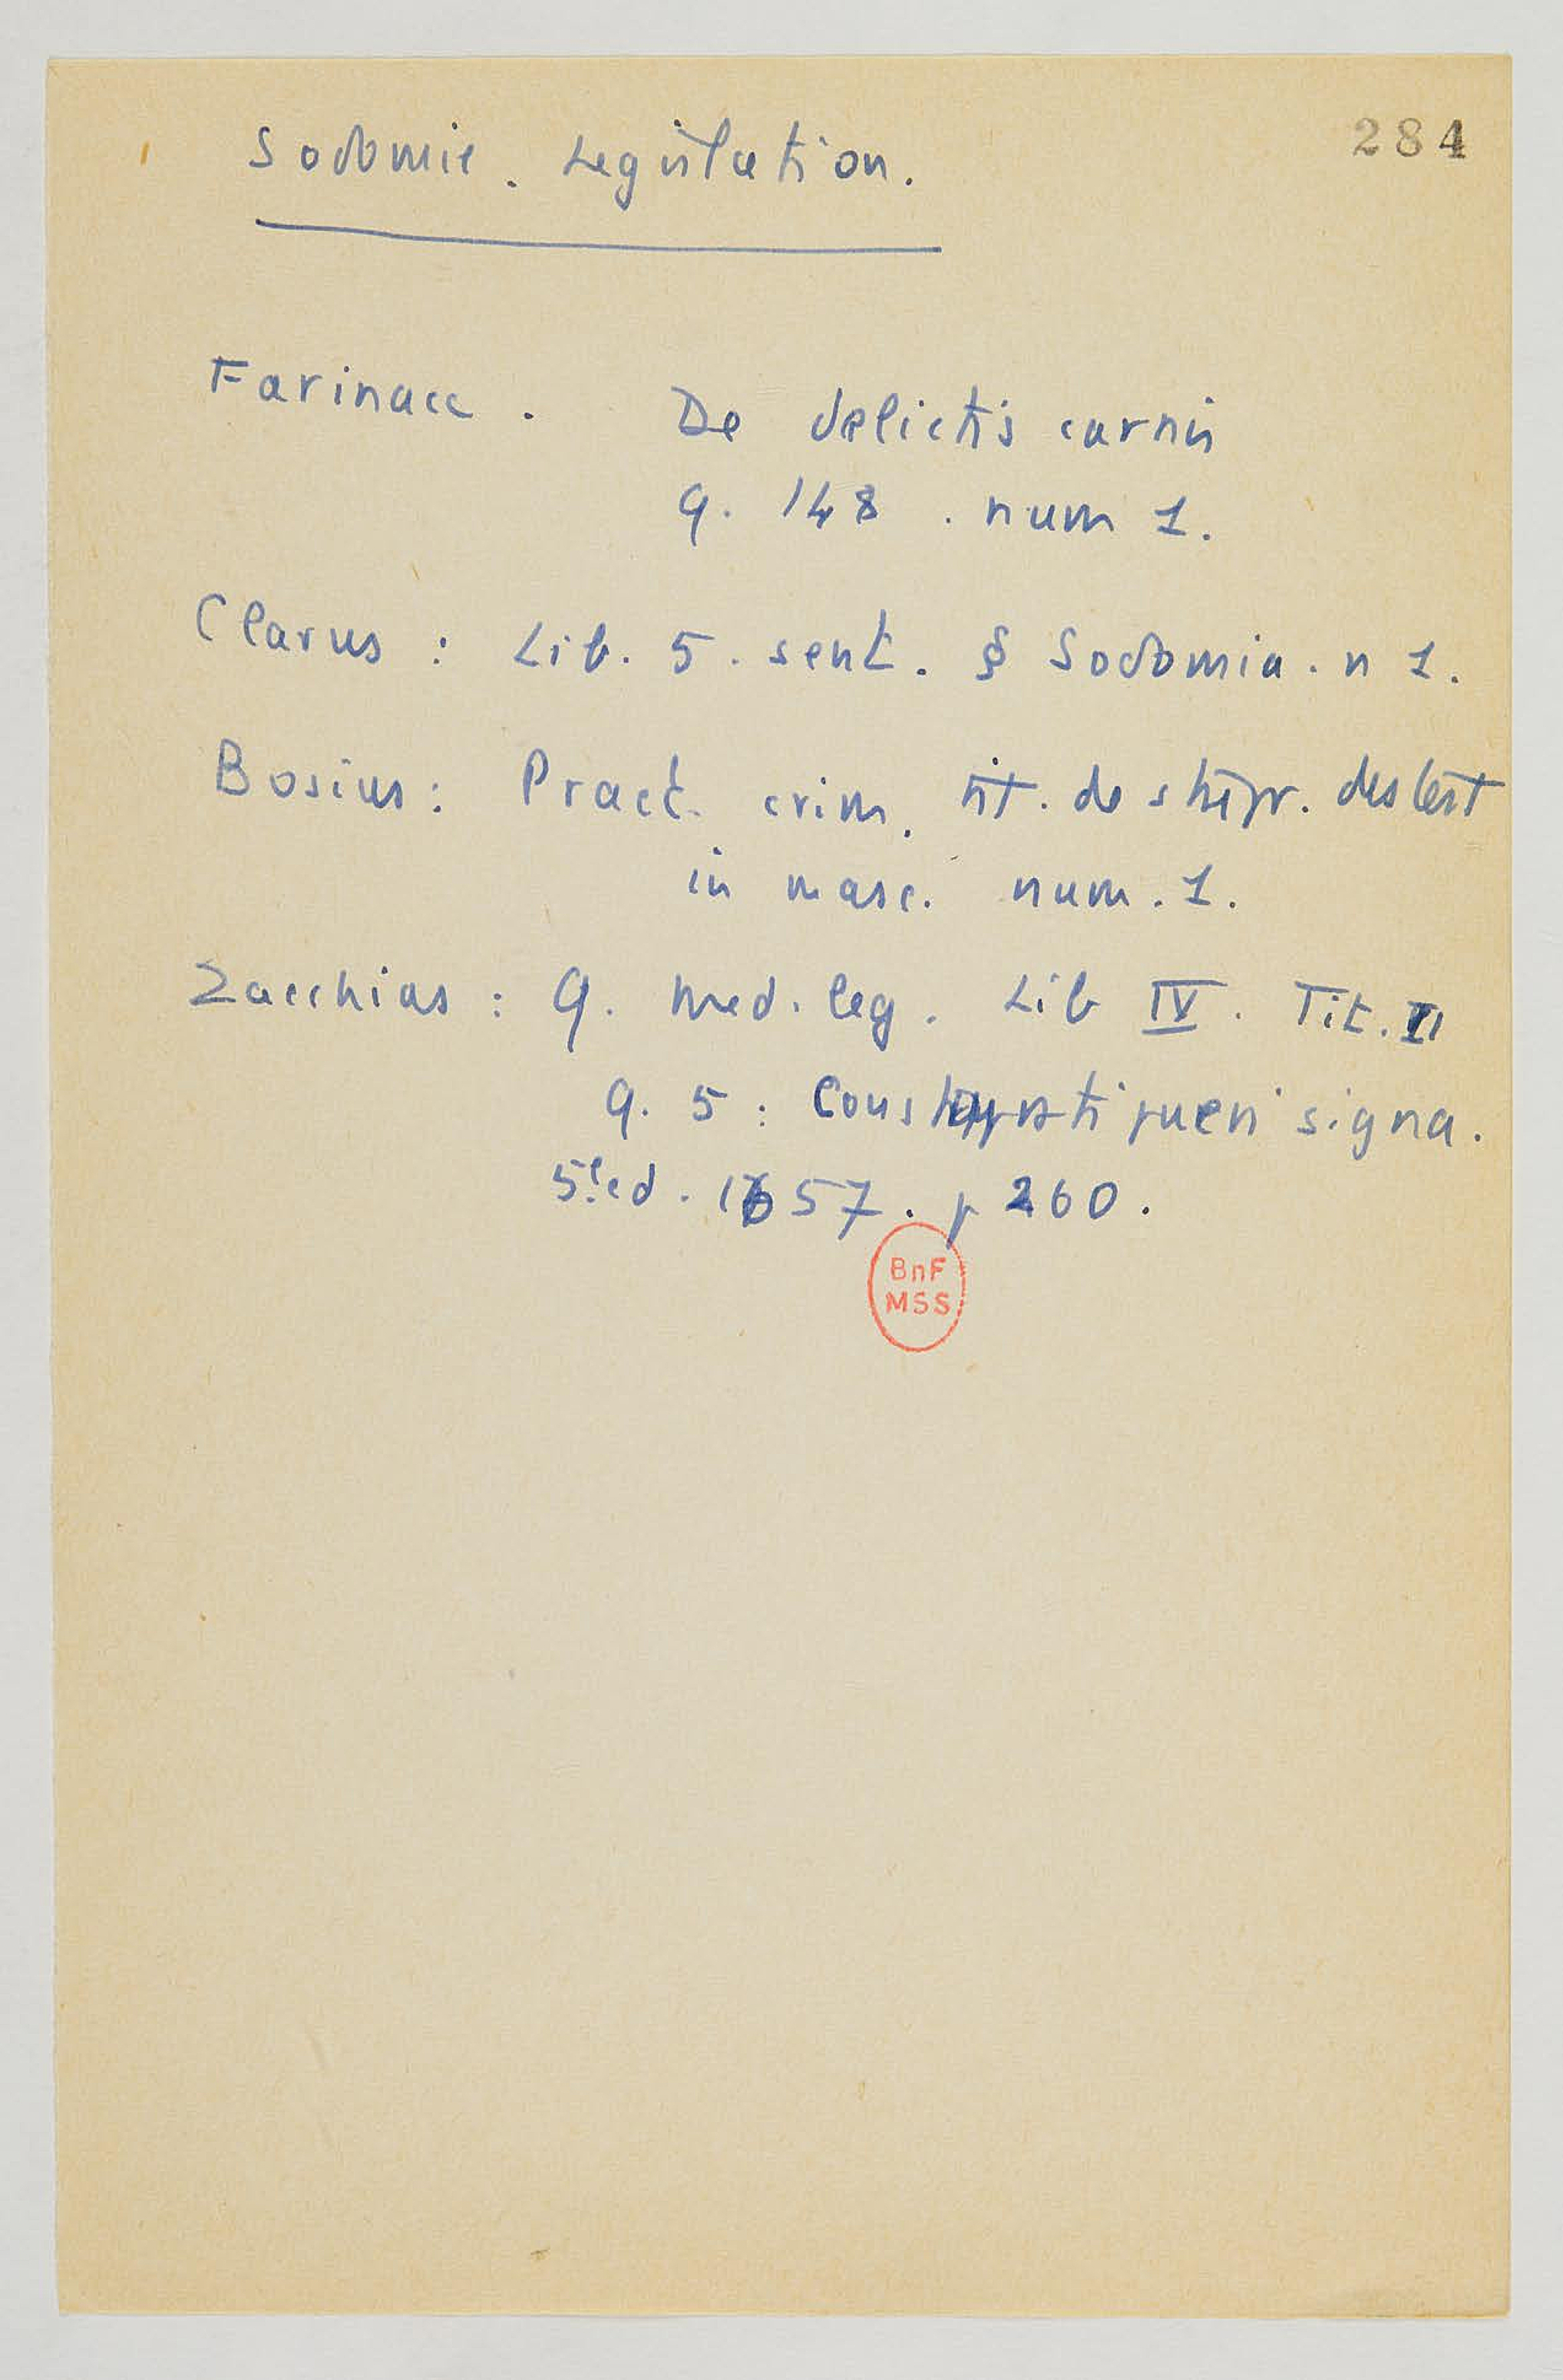 284
Sodomie. Legislation.
Farinacc. De delictis carnis
q. 148. num 1.
Clarus : Lib. 5. sent. § Sodomia. n 1.
Bosius : Pract. crim. tit. de stupr. detest
in masc. num. 1.
Zacchias : Q. med. leg. Lib IV. Tit. II
q. 5 : pueri signa.
5e ed. 1657. p 260.
BnF
MSS